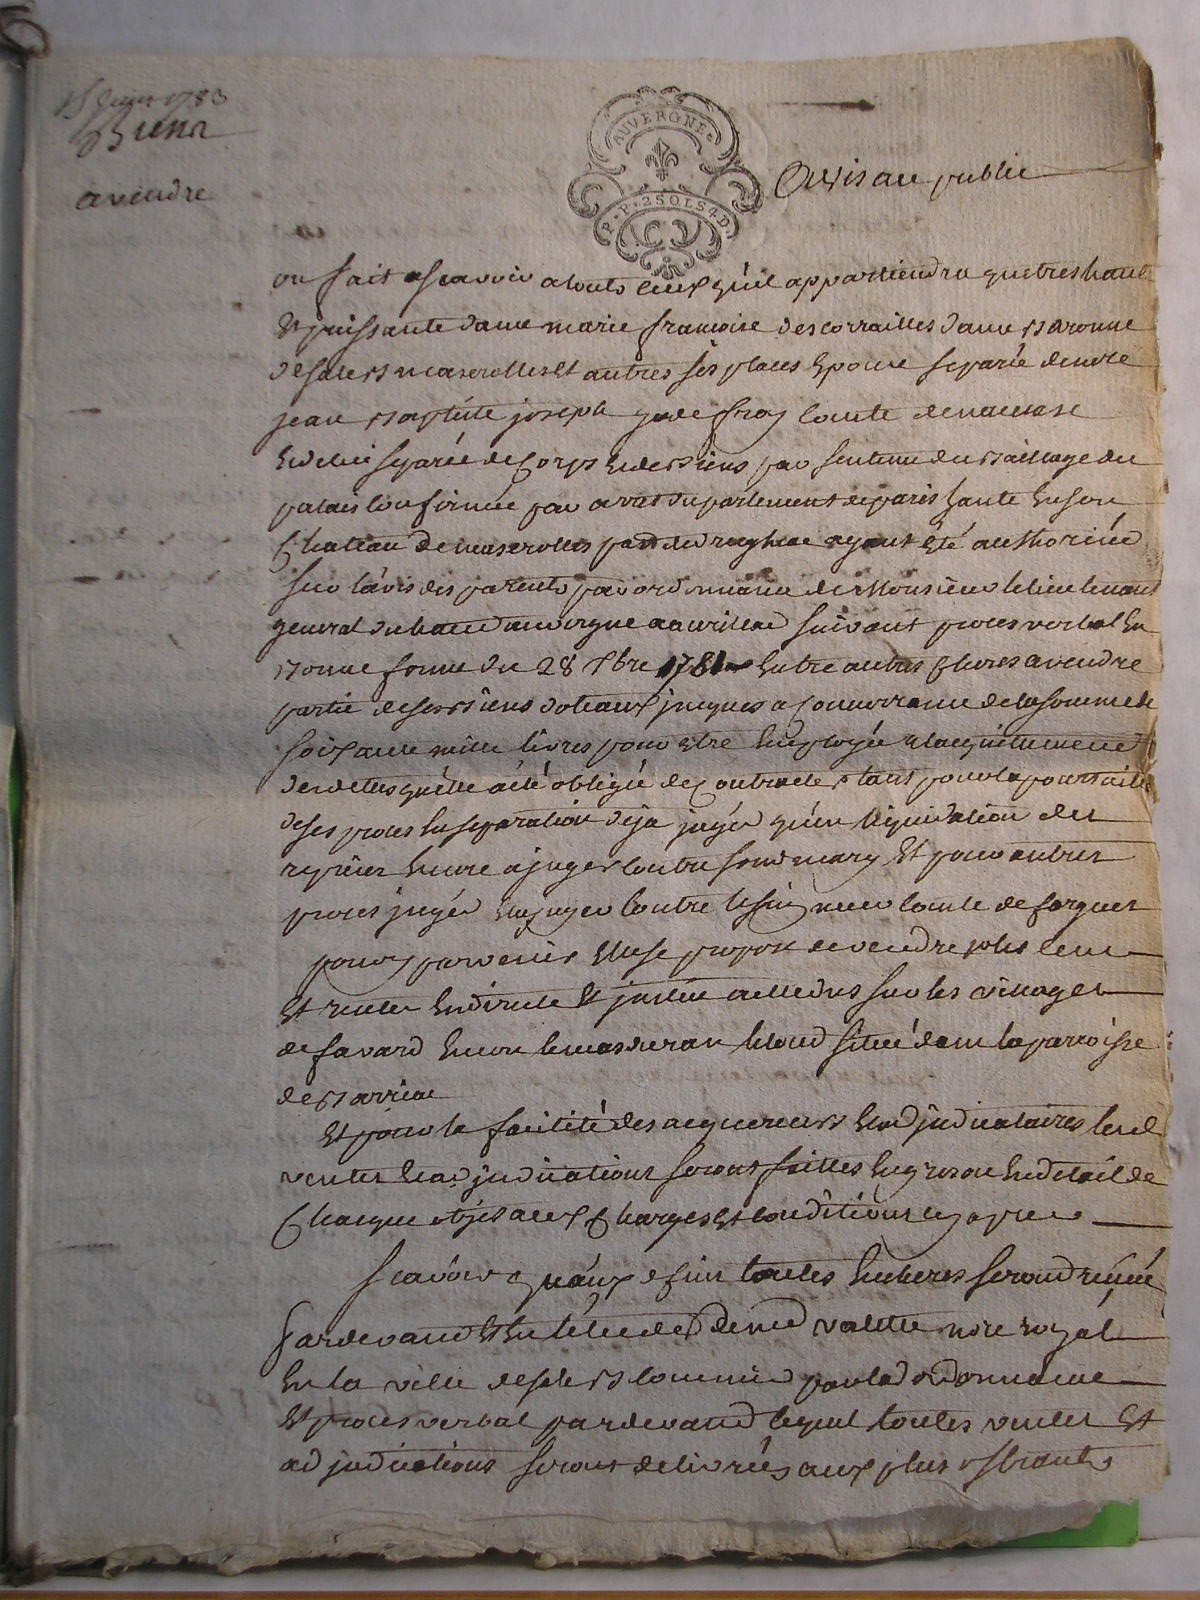 15 Juin 1783
Biens
a vendre
AUVERGNE
P.P. 2 SOLS 4 D.
Avis au public
on fait ascavoir a touts ceux qu'il appartiendra que tres haute
Et puissante dame marie francoise descorrailles dame Baronne
de salers mazerolles Et autres ses places Epouse separée de mre
jean Baptiste joseph godefroy comte de
de lui separée de Corps Et de Biens par sentence du Bailliage du
palais confirmée par arret du parlement de paris habitante En son
Chateau de mazerolles ayant été authorisée
sur l'avis des parents par ordonnance de Monsieur le lieutenant
general du haut auvergne a aurillac suivant proces verbal En
Bonne forme du 28 9bre 1781 Entre autres choses a vendre
partie de ses Biens dotaux jusques a Concurrance de la somme de
soixante mille livres pour etre Employée a l'acquittement
des dettes qu'elle a été obligée de Contracter tant pour la poursuite
de ses proces En separation deja jugés qu'en liquidation des
reprises Encore a juger contre son d mary Et pour autres
proces jugés Et a juger contre le seigneur comte de fargues
pour y parvenir Elle se propose de vendre
Et rentes En directe Et justice a elle dus sur les villages
de favard situé dans la parroisse
de Barriac
Et pour la facilité des acquereurs Et adjudicataires les d
ventes Et adjudications seront faittes En gros ou En detail de
Chaque objet aux Charges Et conditions cy apres
scavoir qu'aux fins toutes Encheres seront
pardevant Et En l'etude de me valette nore royal
En la ville de salers commis par la d ordonnance
Et proces verbal pardevant lequel toutes ventes Et
adjudications seront delivrées aux plus offrants